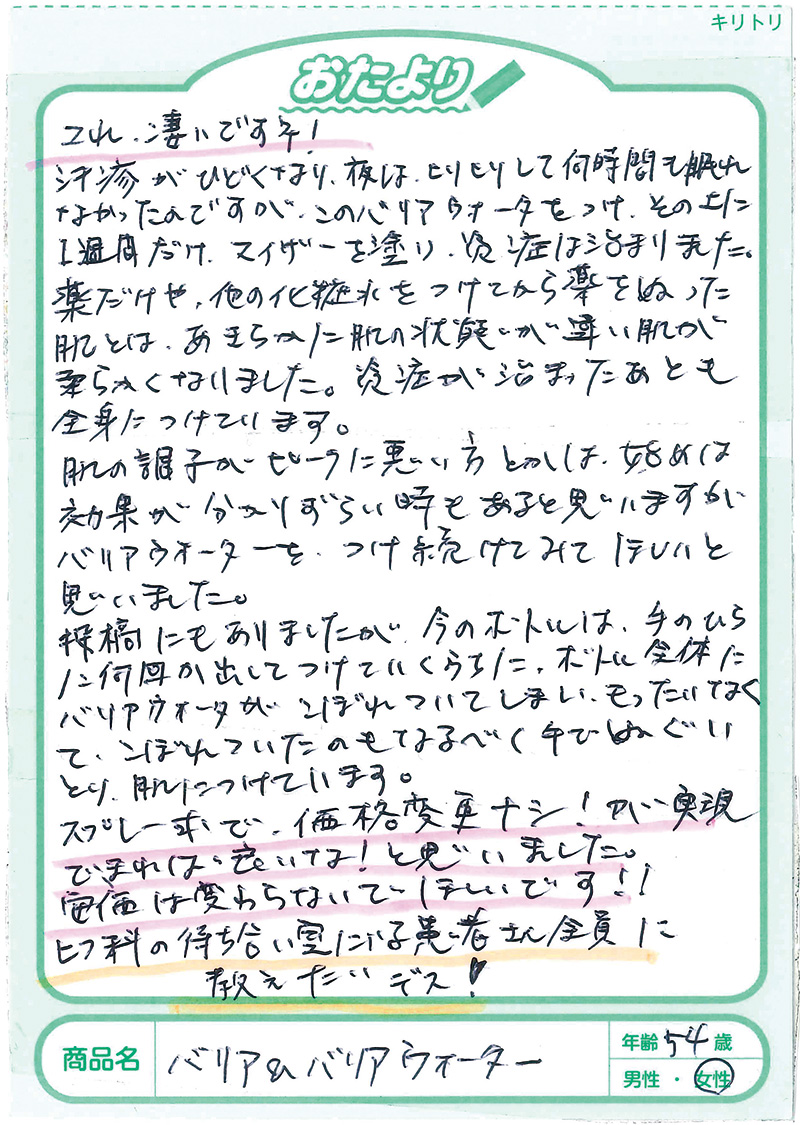 キリトリ
おたより
これ、凄いです！
汗疹がひどくなり、夜は、ヒリヒリして何時間も眠れ
なかったんですが、このバリアウォータをつけ、その上に
1週間だけ、マイザーを塗り、炎症は治まりました。
薬だけや、他の化粧水をつけてから薬をぬった
肌とは、あきらかに肌の状態が違い肌が
柔らかくなりました。炎症が治まったあとも
全身につけています。
肌の調子がピークに悪い方とかは、始めは
効果が分かりずらい時もあると思いますが
バリアウォーターを、つけ続けてみてほしいと
思いました。
投稿にもありましたが、今のボトルは、手のひら
に何回か出してつけていくうちに、ボトル全体に
バリアウォータがこぼれついてしまい、もったいなく
て、こぼれついたのもなるべく手でぬぐい
とり、肌につけています。
スプレー式で、価格変更ナシ！が実現
できれば良いな！と思いました。
定価は変わらないでほしいです！！
ヒフ科の待ち合い室にいる患者さん全員に
教えたいデス！
商品名 バリア&バリアウォーター
年齢 54 歳
男性・女性